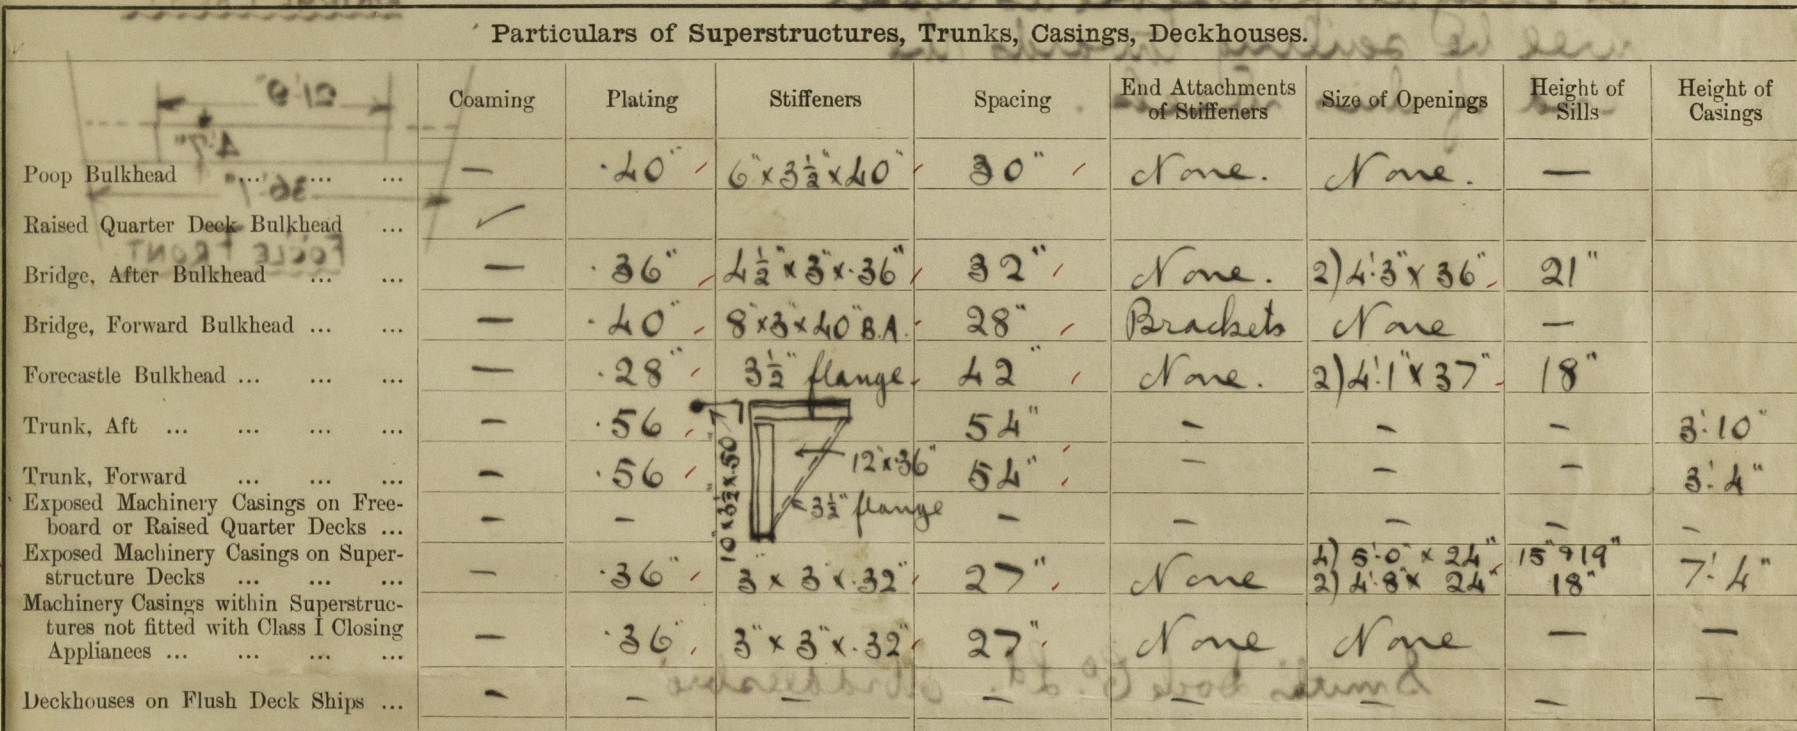 Particulars of Superstructures, Trunks, Casings, Deckhouses.
Coaming Plating Stiffeners Spacing End Attachments of Stiffeners Size of Openings Height of Sills Height of Casings
Poop Bulkhead ... ... ... — .40" 6" x 3½" x 40" 30" None. None. —
Raised Quarter Deck Bulkhead ... ✓
Bridge, After Bulkhead ... ... — .36" 4½" x 3" x .36" 32" None. 2) 4'.3" x 36" 21"
Bridge, Forward Bulkhead ... ... — .40" 8" x 3" x 40" B.A. 28" Brackets None —
Forecastle Bulkhead ... ... ... — .28" 3½" flange 42" None. 2) 4'.1" x 37" 18"
Trunk, Aft ... ... ... ... — .56 54" — — — 3'.10"
Trunk, Forward ... ... ... — .56 10" x 3½" x .50 12" x .36" 54" — — — 3'.4"
Exposed Machinery Casings on Free-
board or Raised Quarter Decks ... — — 3½" flange — — — — —
Exposed Machinery Casings on Super- 4) 5'.0" x 24" 15" & 19"
structure Decks ... ... ... — .36" 3 x 3" x .32" 27" None 2) 4'.8" x 24" 18" 7'.4"
Machinery Casings within Superstruc-
tures not fitted with Class I Closing
Appliances ... ... ... ... — .36" 3" x 3" x .32" 27" None None — —
Deckhouses on Flush Deck Ships ... — — — — — — — —
21'.9"
4'.7"
36'.1"
FOCSLE FRONT